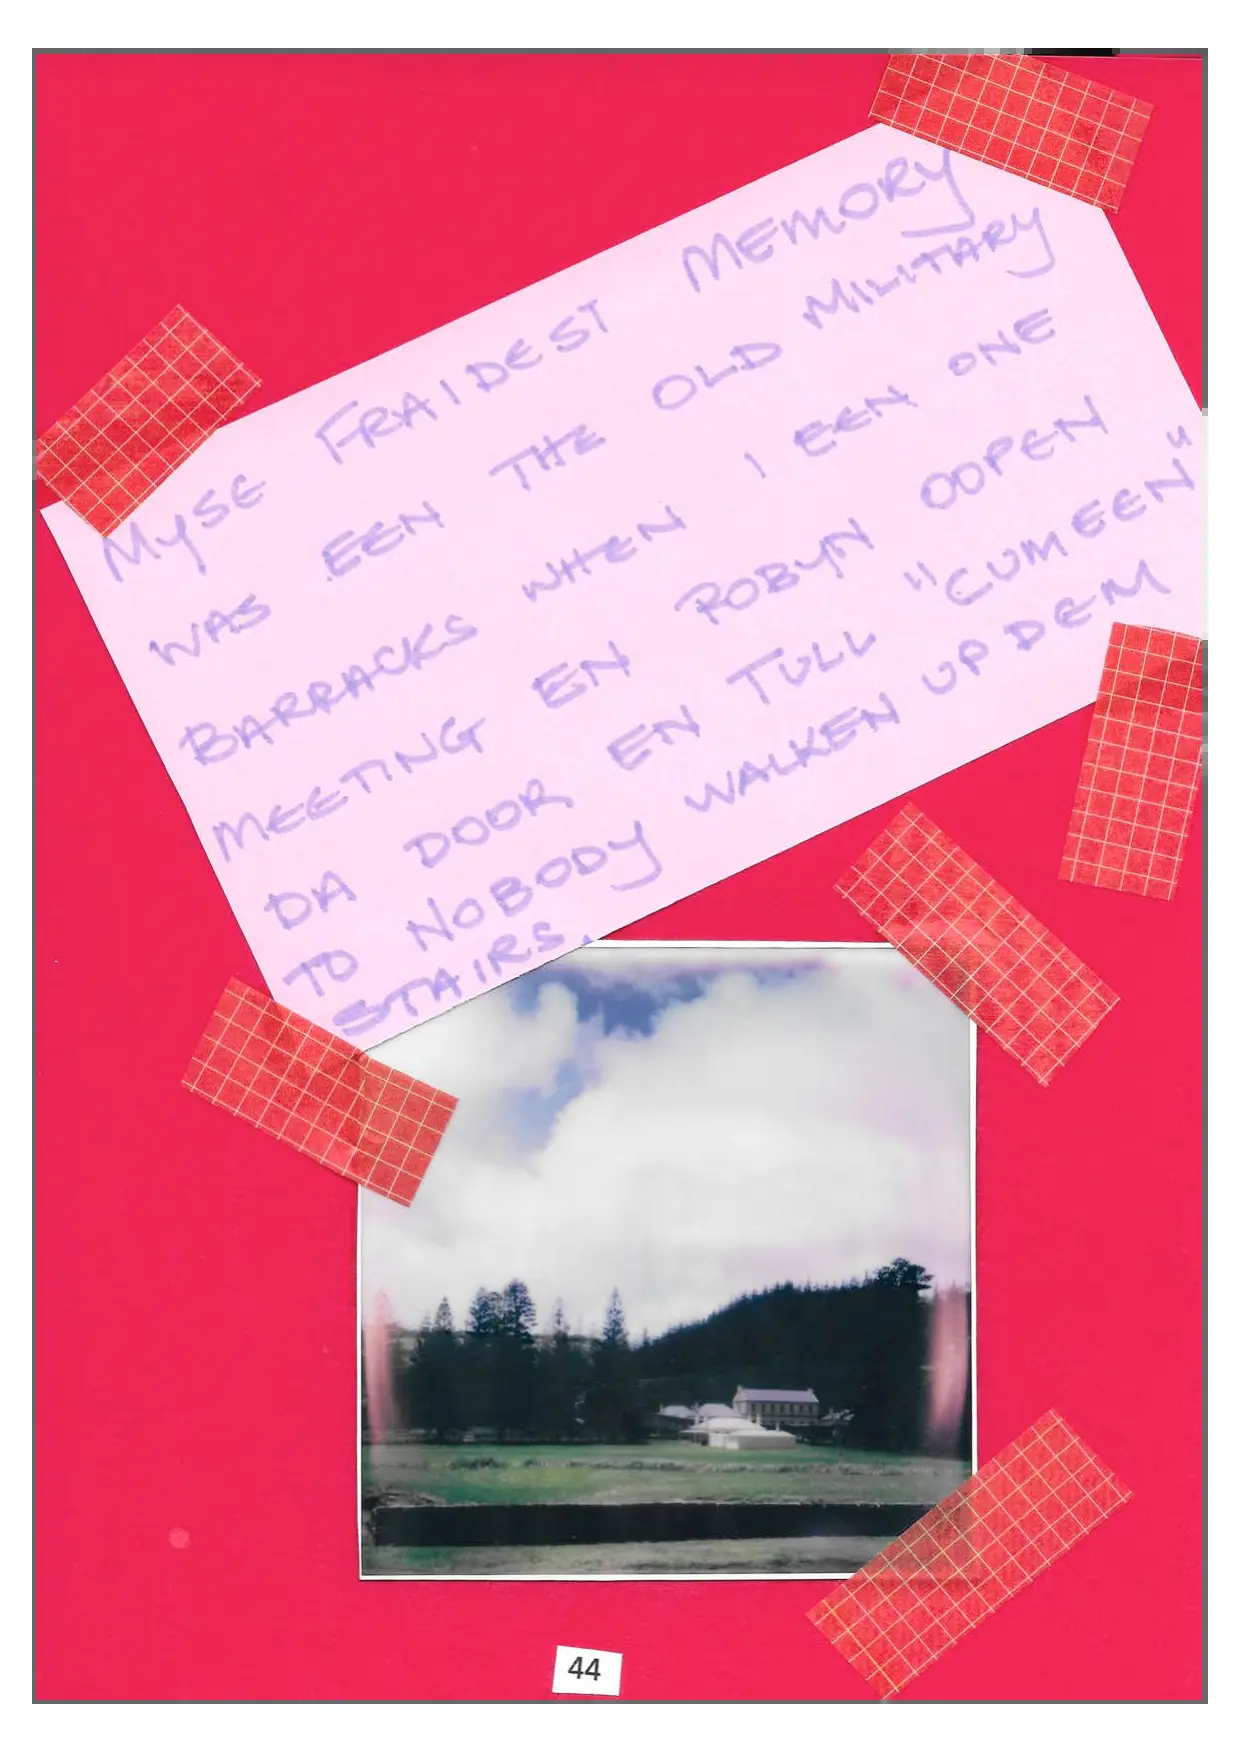 MYSE FRAIDEST MEMORY
WAS EEN THE OLD MILITARY
BARRACKS WHEN I EEN ONE
MEETING EN ROBYN OOPEN
DA DOOR EN TULL "CUMEEN"
TO NOBODY WALKEN UP DEM
STAIRS.
44